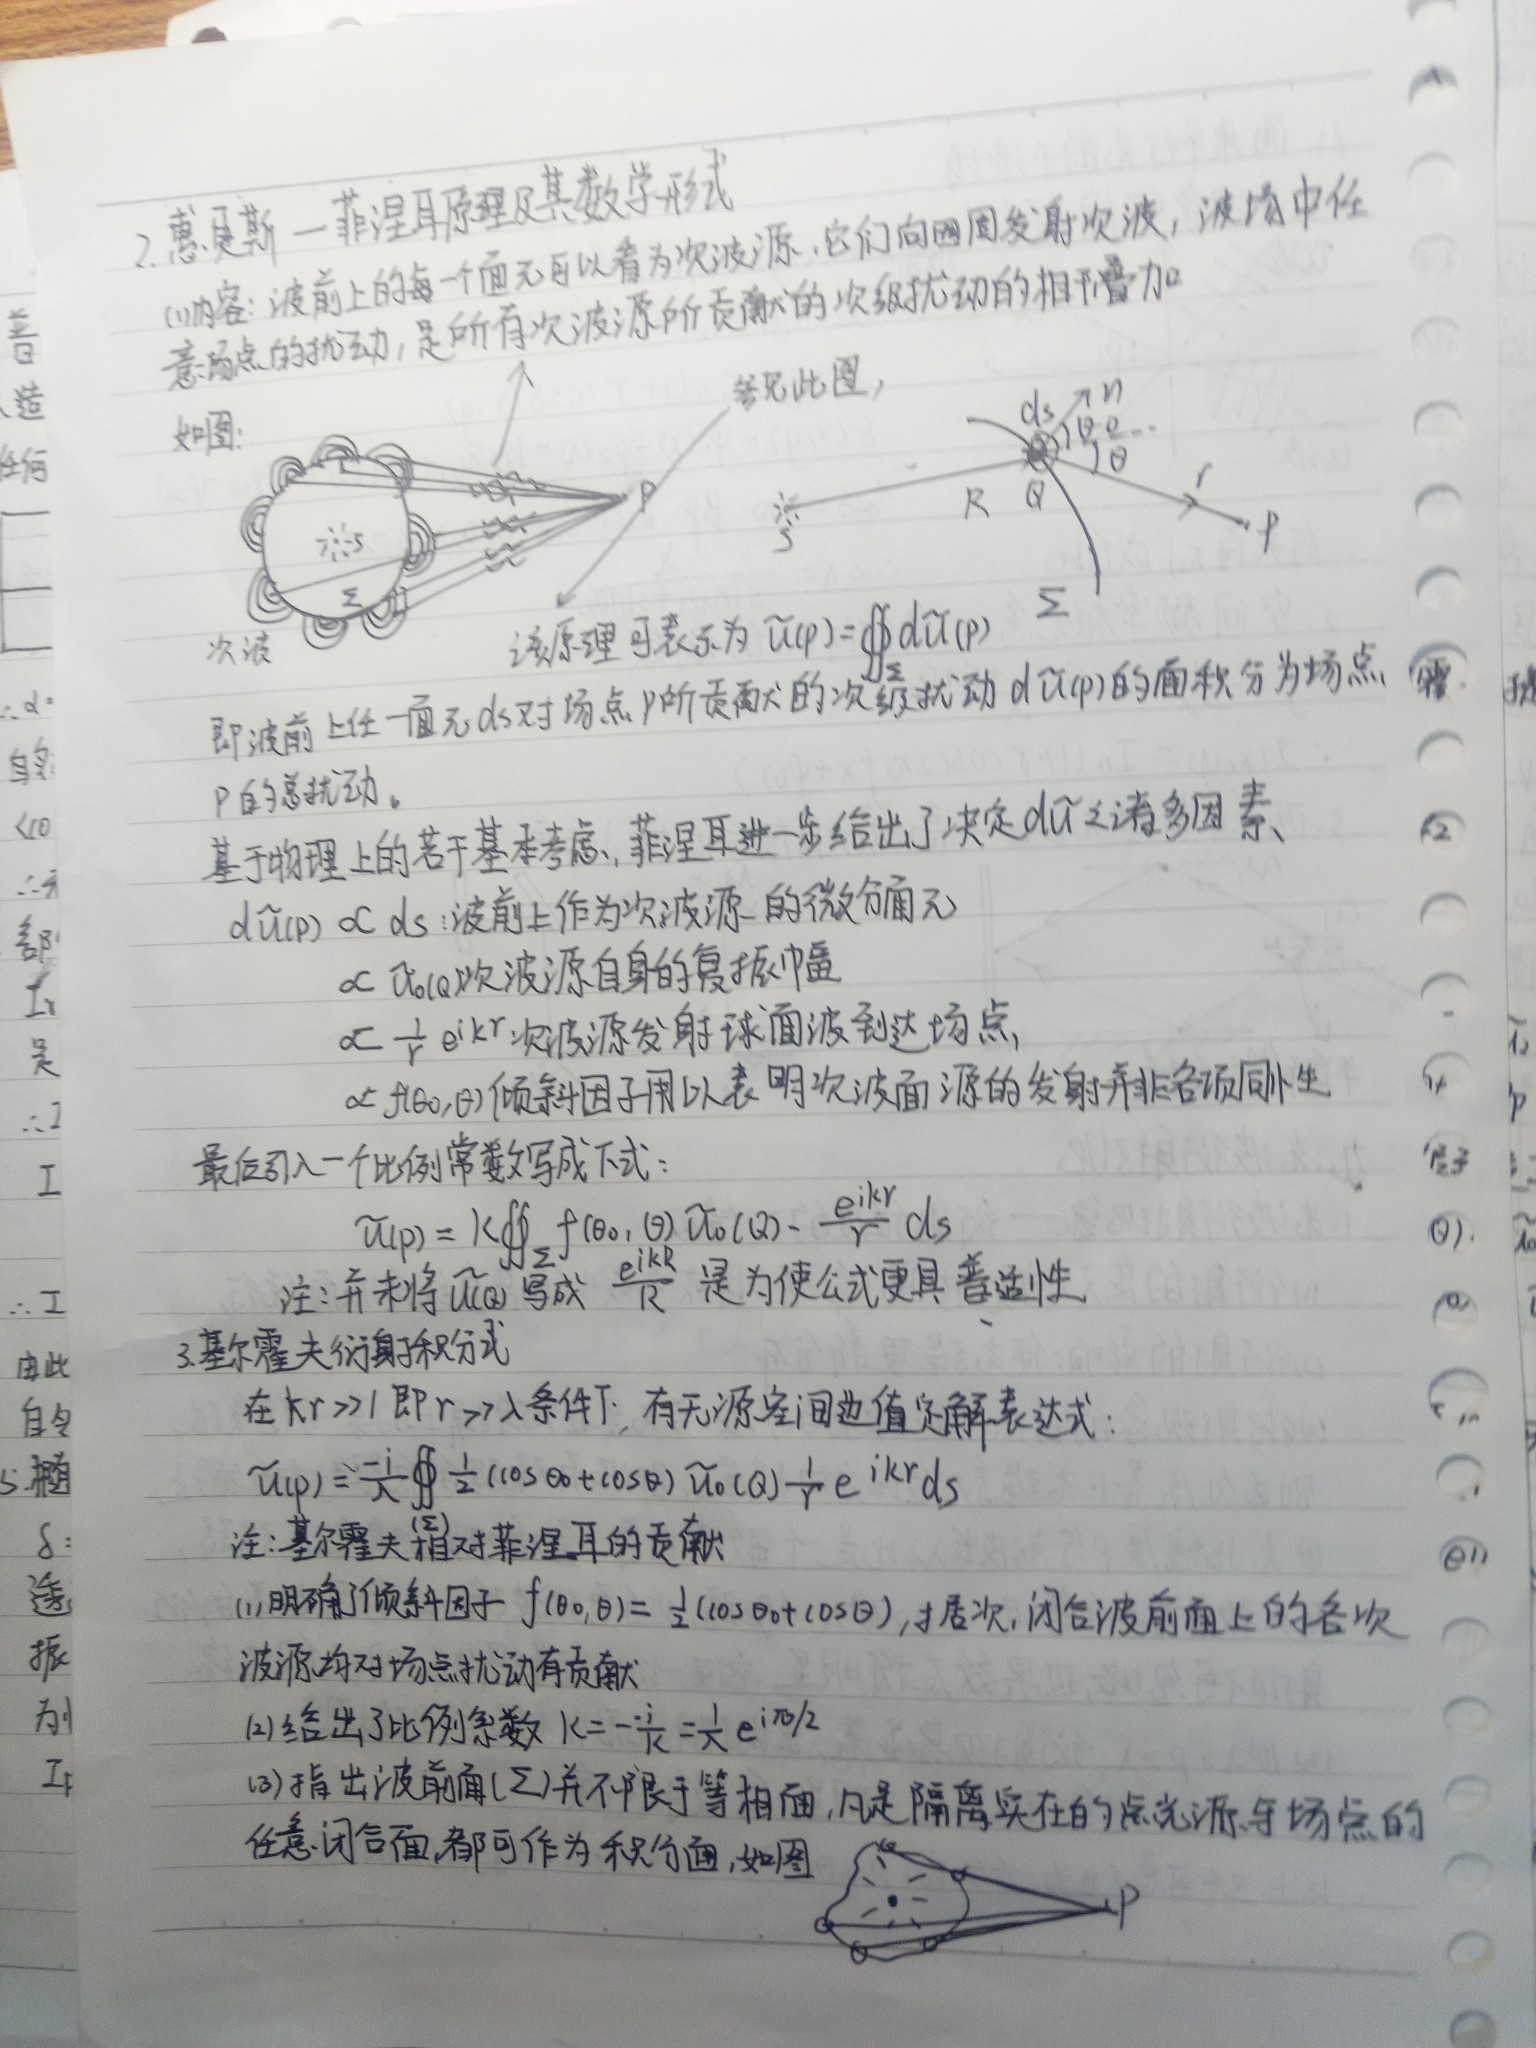 2.惠更斯—菲涅耳原理及其数学形式
(1)内容：波前上的每一个面元可以看为次波源，它们向四周发射次波，波场中任
意场点的扰动，是所有次波源所贡献的次级扰动的相干叠加
参见此图，
如图：
S
Σ
P
次波
ds
n
θ0
θ
r
R
Q
S
P
Σ
该原理可表示为 ũ(p)=∯_Σ dũ(p)
即波前上任一面元ds对场点P所贡献的次级扰动dũ(p)的面积分为场点
P的总扰动。
基于物理上的若干基本考虑，菲涅耳进一步给出了决定dũ之诸多因素、
dũ(p) ∝ ds：波前上作为次波源的微分面元
∝ ũ0(Q)次波源自身的复振幅
∝ 1/r e^{ikr} 次波源发射球面波到达场点，
∝ f(θ0,θ)倾斜因子用以表明次波面源的发射并非各项同性
最后引入一个比例常数写成下式：
ũ(p) = K∯_Σ f(θ0,θ) ũ0(Q)· e^{ikr}/r ds
注：并未将 ũ(Q) 写成 e^{ikR}/R 是为使公式更具普适性
3.基尔霍夫衍射积分式
在kr>>1即r>>λ条件下，有无源空间边值定解表达式：
ũ(p) = -i/λ ∯_(Σ) 1/2 (cosθ0+cosθ) ũ0(Q) 1/r e^{ikr} ds
注：基尔霍夫相对菲涅耳的贡献
(1)明确了倾斜因子 f(θ0,θ)= 1/2(cosθ0+cosθ)，据次，闭合波前面上的各次
波源均对场点扰动有贡献
(2)给出了比例系数 K=-i/λ=1/λ e^{iπ/2}
(3)指出波前面(Σ)并不限于等相面，凡是隔离实在的点光源与场点的
任意闭合面，都可作为积分面，如图
P